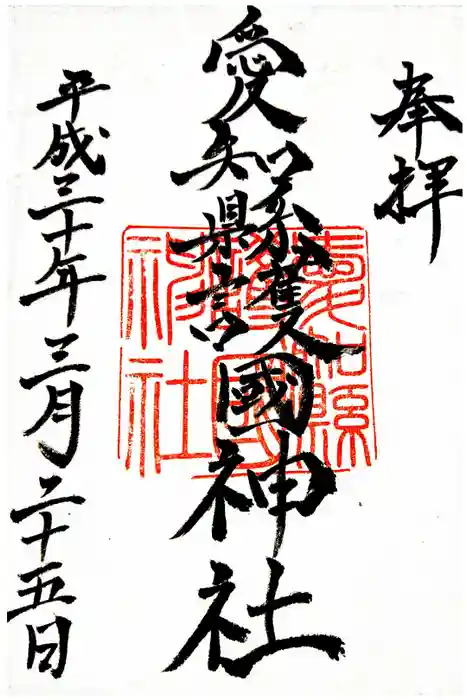 奉拝
愛知縣護國神社
平成三十年三月二十五日
愛知縣護國神社